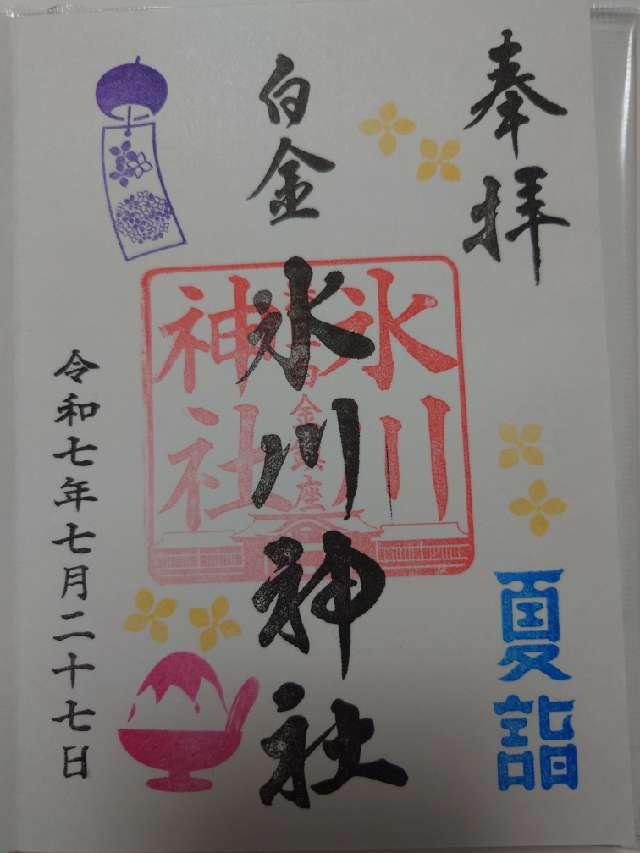 奉拝
夏詣
白金
氷川神社
氷川
神社
白金鎮座
令和七年七月二十七日